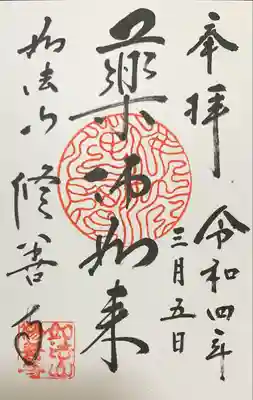 奉拝
令和四年
三月五日
薬師如来
如法山
修善寺